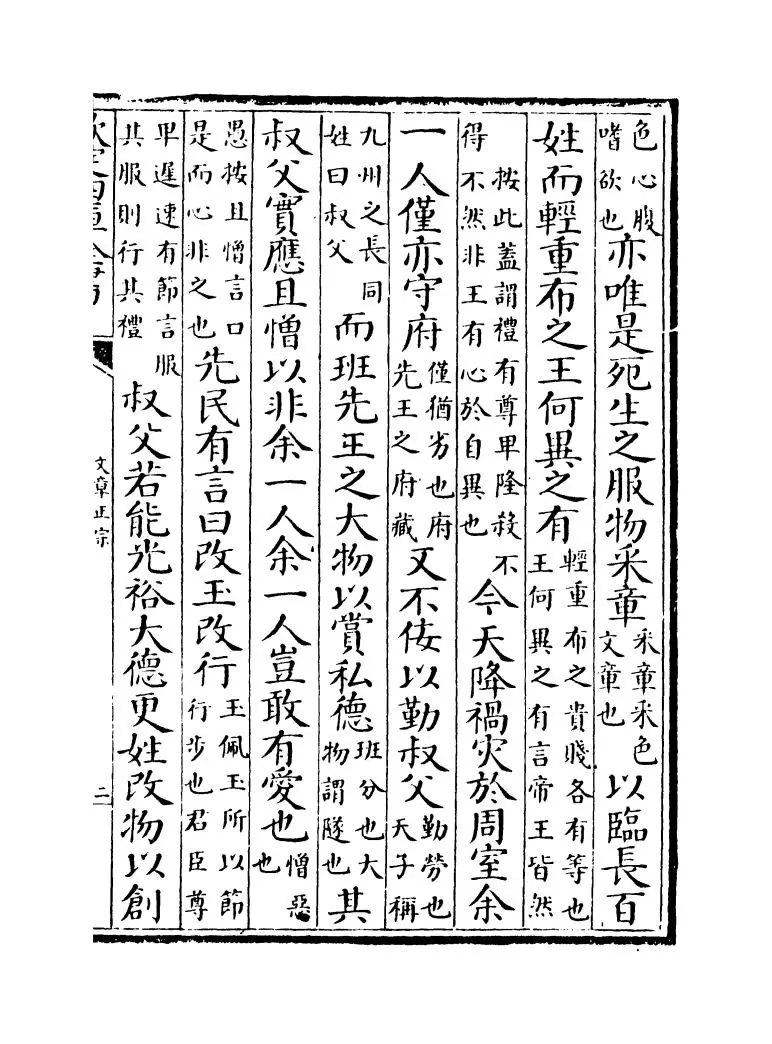 色心腹嗜欲也亦唯是死生之服物采章采章采色文章也以臨長百
姓而輕重布之王何異之有輕重布之貴賤各有等也王何異之有言帝王皆然
按此蓋謂禮有尊卑隆殺不得不然非王有心於自異也今天降禍災於周室余
一人僅亦守府僅猶劣也府先王之府藏又不佞以勤叔父勤勞也天子稱
九州之長同姓曰叔父而班先王之大物以賞私德班分也大物謂隧也其
叔父實應且憎以非余一人余一人豈敢有愛也憎惡也
愚按且憎言口是而心非之也先民有言曰改玉改行玉佩玉所以節行步也君臣尊
卑遲速有節言服其服則行其禮叔父若能光裕大德更姓改物以創
文章正宗
二